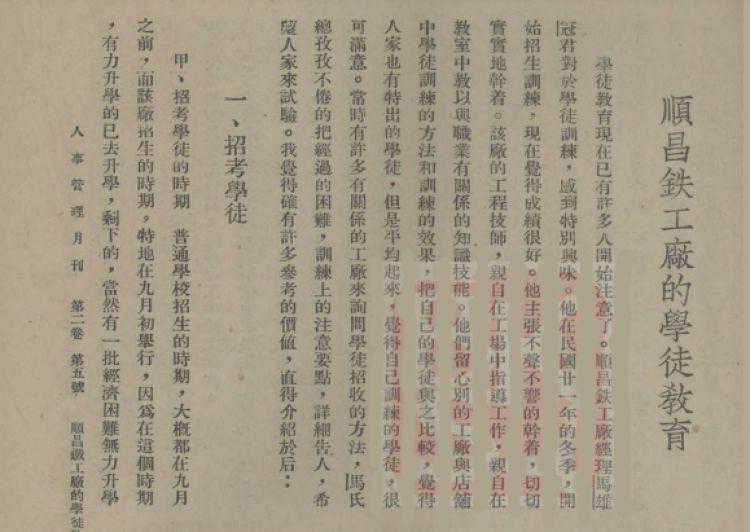 順昌鉄工廠的學徒教育
學徒教育現在已有許多人開始注意了。順昌鉄工廠經理馬雄
冠君對於學徒訓練，感到特別興味。他在民國廿一年的冬季，開
始招生訓練，現在覺得成績很好。他主張不聲不響的幹着，切切
實實地幹着。該廠的工程技師，親自在工場中指導工作，親自在
教室中教以與職業有關係的知識技能。他們留心別的工廠與店舖
中學徒訓練的方法和訓練的效果，把自己的學徒與之比較，覺得
人家也有特出的學徒，但是平均起來，覺得自己訓練的學徒，很
可滿意。當時有許多有關係的工廠來詢問學徒招收的方法，馬氏
總孜孜不倦的把經過的困難，訓練上的注意要點，詳細告人，希
望人家來試驗。我覺得確有許多參考的價値，直得介紹於后：
一、招考學徒
甲、招考學徒的時期　普通學校招生的時期，大概都在九月
之前，而該廠招生的時期，特地在九月初舉行，因爲在這個時期
，有力升學的已去升學，剩下的，當然有一批經濟困難無力升學
人事管理月刊　第二卷　第五號　順昌鐵工廠的學徒